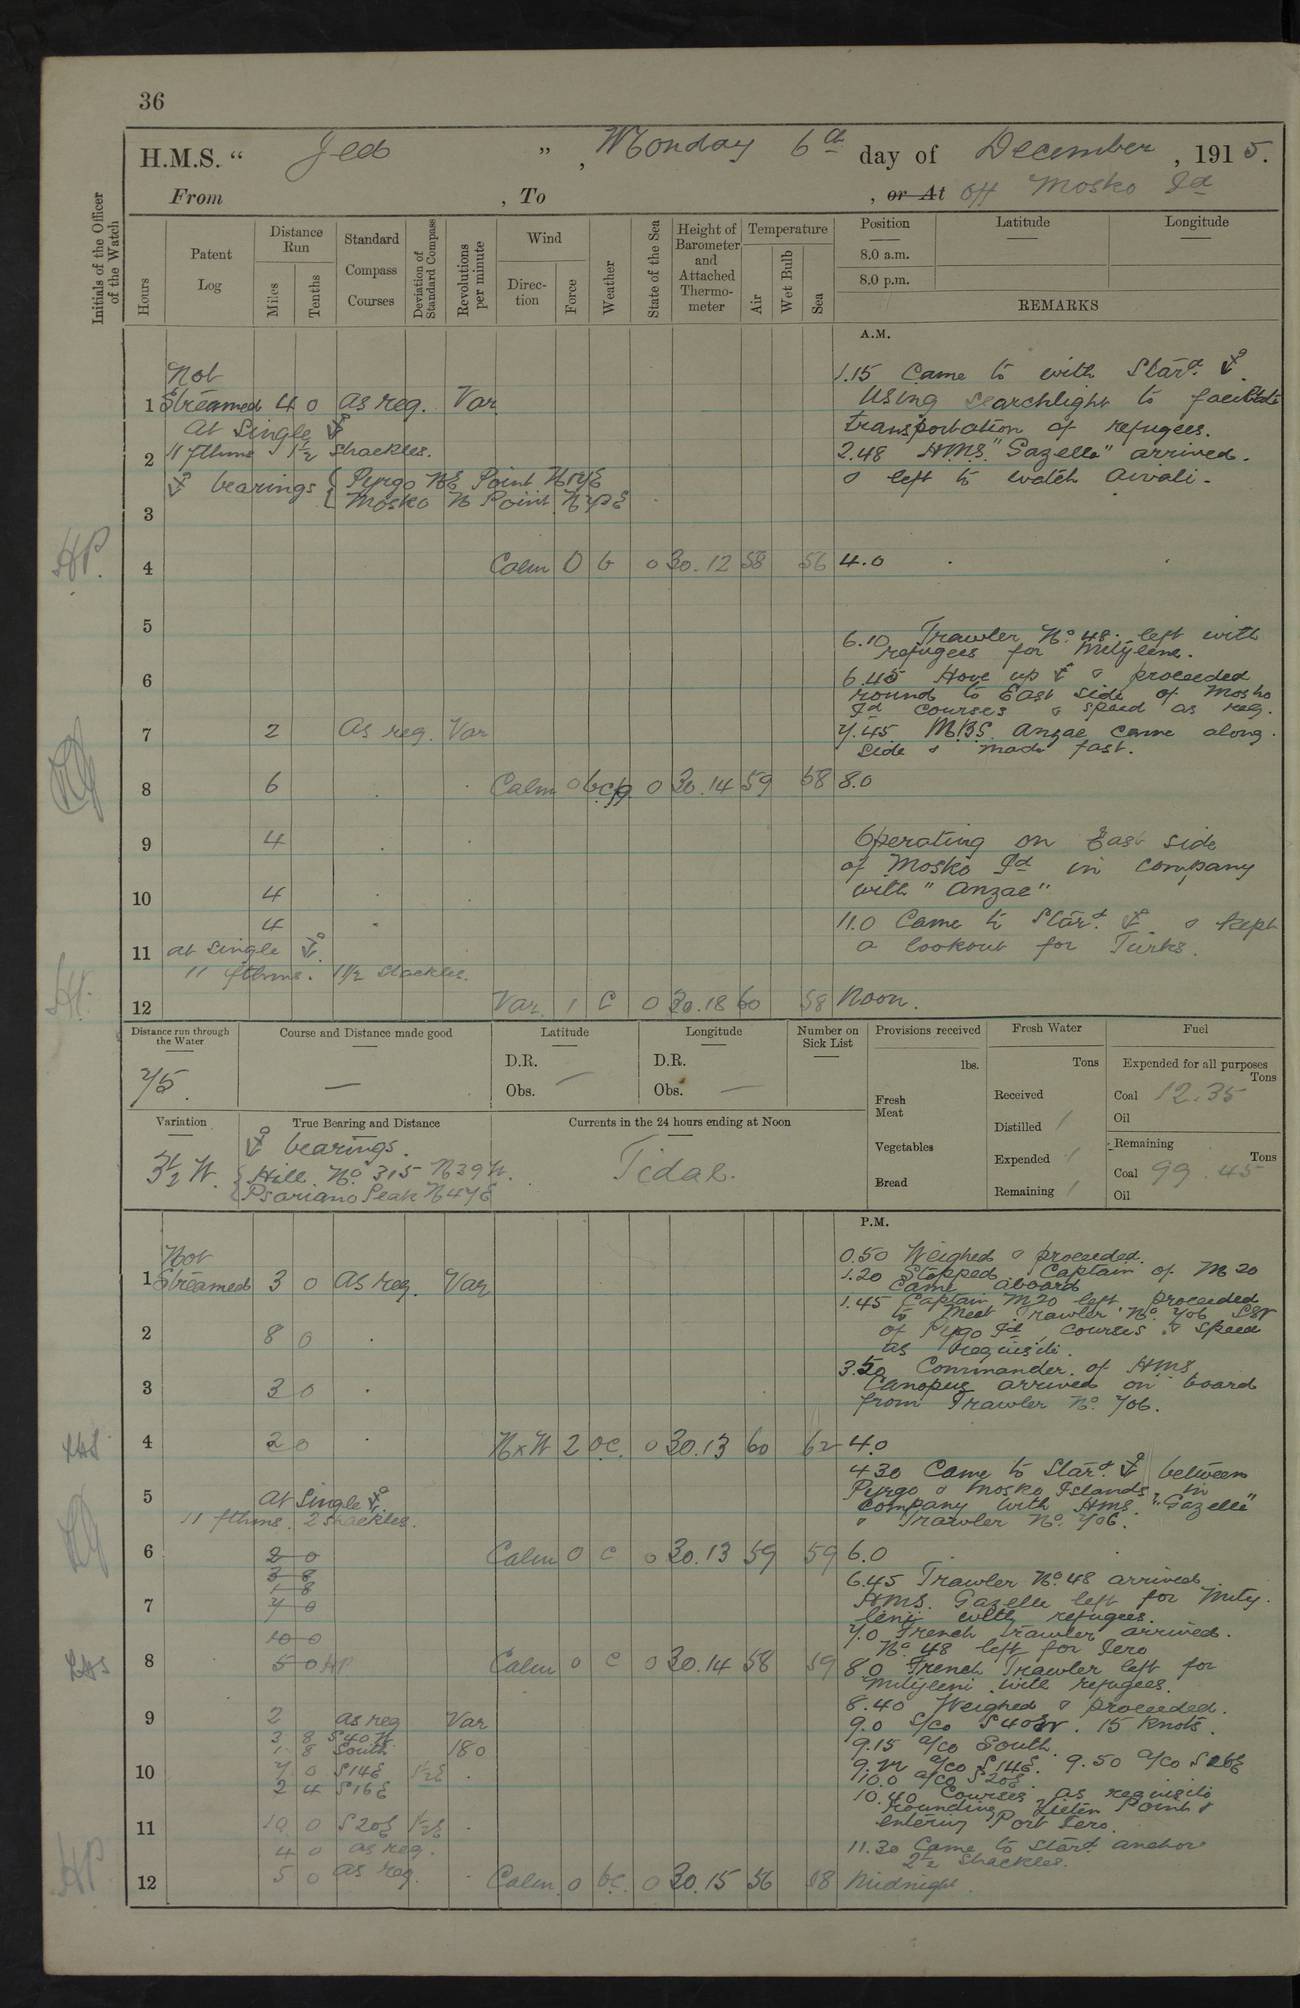 36
H.M.S. “ Jed ” , Monday 6th day of December , 1915.
From , To , or At Off Mosko Id
Initials of the Officer of the Watch
Hours
Patent Log
Distance Run
Miles
Tenths
Standard Compass Courses
Deviation of Standard Compass
Revolutions per minute
Wind
Direction
Force
Weather
State of the Sea
Height of Barometer and Attached Thermometer
Temperature
Air
Wet Bulb
Sea
Position
Latitude
Longitude
8.0 a.m.
8.0 p.m.
REMARKS
A.M.
Not
1 Streamed 4 0 as req. Var
1.15 Came to with Star'd ⚓.
Using searchlight to facilitate
At Single ⚓
transportation of refugees.
2 11 fthms 1½ shackles.
2.48 HMS "Gazelle" arrived.
⚓ bearings { Pyrgo NE Point N17E
& left to watch Aivali.
{ Mosko N Point N72E
3
HP.
4 Calm 0 b 0 30.12 58 56 4.0
5
6.10 Trawler No. 48 left with
refugees for Mitylene.
6
6.45 Hove up ⚓ & proceeded
round to East side of Mosko
Id courses & speed as req.
7 2 as req. Var
7.45 M.B.S. Anzac came along
side & made fast.
8 6 Calm 0 bcp 0 30.14 59 58 8.0
9 4
Operating on East side
of Mosko Id in company
10 4
with "Anzac"
4
11.0 Came to Star'd ⚓ & kept
11 at single ⚓.
a lookout for Turks.
11 fthms. 1½ shackles.
12 Var 1 c 0 30.18 60 58 Noon.
Distance run through the Water
75.
Course and Distance made good
—
Latitude
D.R.
Obs. —
Longitude
D.R.
Obs. —
Number on Sick List
Provisions received
lbs.
Fresh Meat
Vegetables
Bread
Fresh Water
Tons
Received
Distilled
Expended
Remaining
Fuel
Expended for all purposes
Tons
Coal 12.35
Oil
Remaining
Tons
Coal 99.45
Oil
Variation
3½ W.
True Bearing and Distance
⚓ bearings.
{ Hill No. 315 N39W.
{ Psariano Peak N47E
Currents in the 24 hours ending at Noon
Tidal.
P.M.
Not
0.50 Weighed & proceeded.
1 Streamed 3 0 as req. Var
1.20 Stopped. Captain of M20
came aboard
1.45 Captain M20 left. proceeded
to meet Trawler No. 706 S8W
2 8 0
of Pyrgo Id, courses & speed
as requisite.
3.50 Commander of HMS
3 3 0
Canopus arrived on board
from Trawler No. 706.
4 2 0 NxW 2 oc. 0 30.13 60 62 4.0
4.30 Came to Star'd ⚓ between
Pyrgo & Mosko Islands, in
5 at Single ⚓.
company with HMS. "Gazelle"
11 fthms. 2 shackles.
& Trawler No. 706.
6 2 0 Calm 0 c 0 30.13 59 59 6.0
3 8
6.45 Trawler No. 48 arrived.
1 8
HMS. Gazelle left for Mity
7 7 0
leni with refugees.
7.0 French trawler arrived.
10 0
No. 48 left for Iero
8 5 0 HP Calm 0 c 0 30.14 58 59 8.0 French Trawler left for
Mityleni with refugees.
8.40 Weighed & proceeded.
9 2 as req Var
9.0 S/co S40W. 15 knots.
3 8 S40W
9.15 a/co South.
1 8 South 180
10 7 0 S14E 1½E
a/co S14E. 9.50 a/co S16E
2 4 S16E
10.0 a/co S20E
10.40 Courses as requisite
rounding Point &
11 10 0 S20E
entering Port Iero.
4 0 as req.
11.30 Came to Star'd anchor
2½ shackles.
HP
12 5 0 as req. Calm 0 bc. 0 30.15 56 58 Midnight.